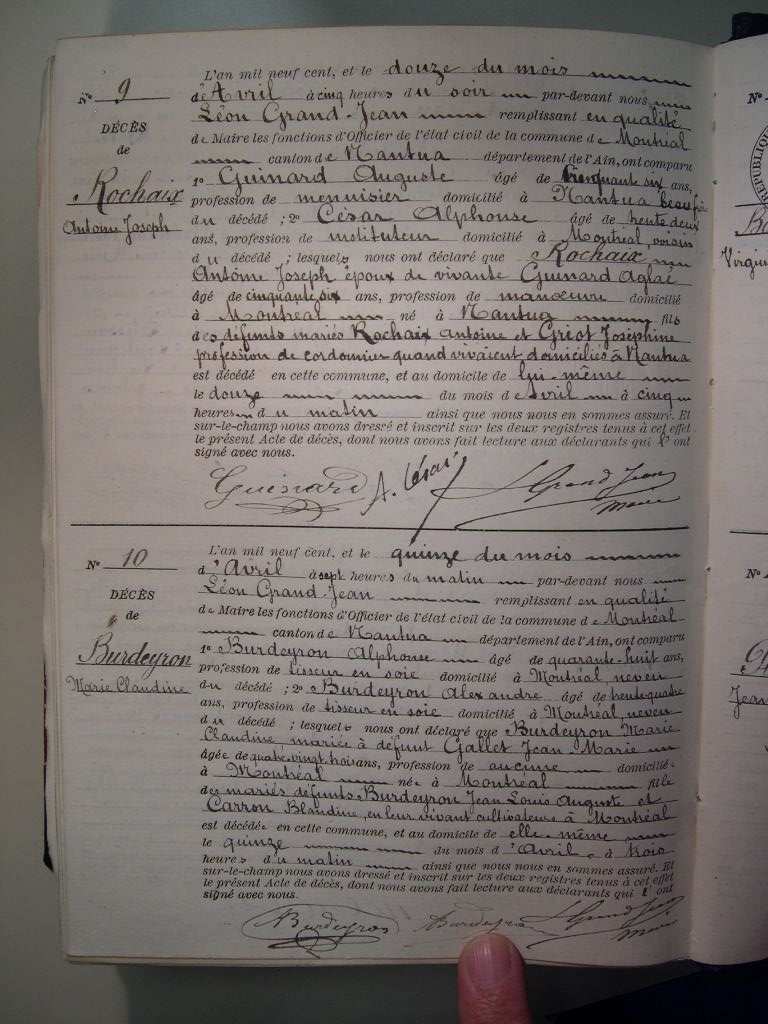 Nº 9
DÉCÈS
de
Rochaix
Antoine Joseph
L'an mil neuf cent, et le douze du mois
d'Avril à cinq heures du soir par-devant nous
Léon Grand-Jean remplissant en qualité
de Maire les fonctions d'Officier de l'état civil de la commune de Montréal
canton de Nantua département de l'Ain, ont comparu
1º Guinard Auguste âgé de cinquante six ans,
profession de menuisier domicilié à Nantua beau frère
du décédé ; 2º César Alphonse âgé de trente deux
ans, profession de instituteur domicilié à Montréal, voisin
du décédé ; lesquels nous ont déclaré que Rochaix
Antoine Joseph époux de vivante Guinard Aglaé
âgé de cinquante six ans, profession de manœuvre domicilié
à Montréal né à Nantua fils
des défunts mariés Rochaix Antoine et Griot Joséphine
profession de cordonnier quand vivaient domiciliés à Nantua
est décédé en cette commune, et au domicile de lui-même
le douze du mois d'avril à cinq
heures du matin ainsi que nous nous en sommes assuré. Et
sur-le-champ nous avons dressé et inscrit sur les deux registres tenus à cet effet
le présent Acte de décès, dont nous avons fait lecture aux déclarants qui l'ont
signé avec nous.
Guinard A. César L Grand Jean
Maire
Nº 10
DÉCÈS
de
Burdeyron
Marie Claudine
L'an mil neuf cent, et le quinze du mois
d'Avril à sept heures du matin par-devant nous
Léon Grand-Jean remplissant en qualité
de Maire les fonctions d'Officier de l'état civil de la commune de Montréal
canton de Nantua département de l'Ain, ont comparu
1º Burdeyron Alphonse âgé de quarante-huit ans,
profession de tisseur en soie domicilié à Montréal, neveu
du décédé ; 2º Burdeyron Alexandre âgé de trente-quatre
ans, profession de tisseur en soie domicilié à Montréal, neveu
du décédé ; lesquels nous ont déclaré que Burdeyron Marie
Claudine, mariée à défunt Gallet Jean-Marie
âgée de quatre-vingt trois ans, profession de aucune domiciliée
à Montréal née à Montréal fille
des mariés défunts Burdeyron Jean Louis Auguste et
Carron Blandine, en leur vivant cultivateurs à Montréal
est décédée en cette commune, et au domicile de elle-même
le quinze du mois d'Avril à trois
heures du matin ainsi que nous nous en sommes assuré. Et
sur-le-champ nous avons dressé et inscrit sur les deux registres tenus à cet effet
le présent Acte de décès, dont nous avons fait lecture aux déclarants qui l'ont
signé avec nous.
Burdeyron Burdeyron L Grand Jean
Maire
Nº
RÉPUBLIQUE
Virgin
Nº
Jean